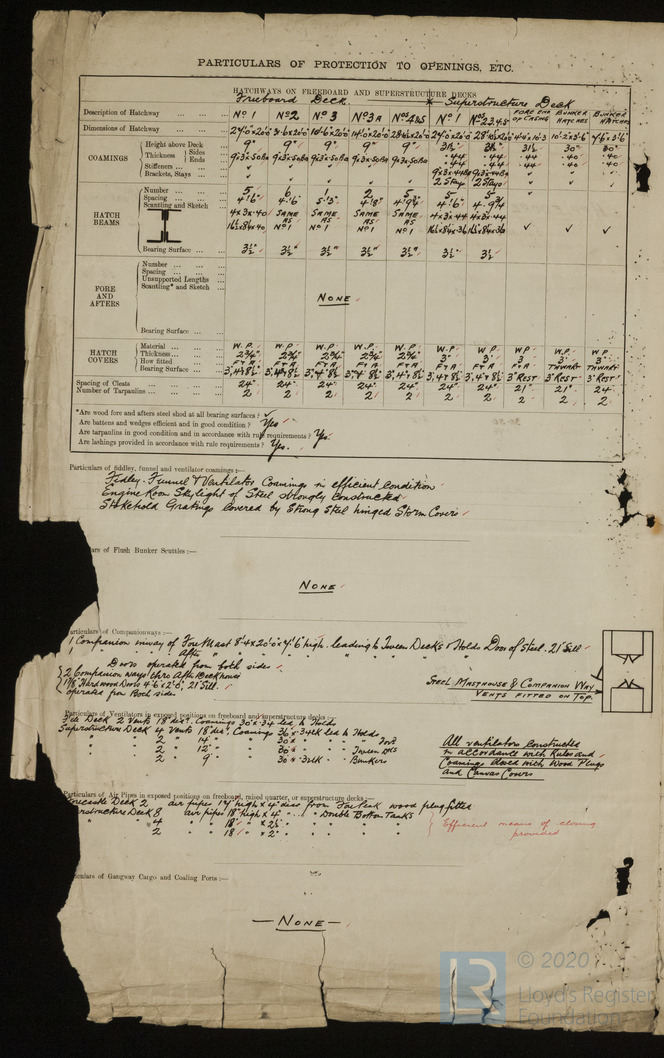 PARTICULARS OF PROTECTION TO OPENINGS, ETC.
HATCHWAYS ON FREEBOARD AND SUPERSTRUCTURE DECKS
Freeboard Deck. Superstructure Deck
Description of Hatchway No 1 No 2 No 3 No 3A No 4&5 No 1 Nos 2,3,4&5 FORE END OF CASING BUNKER HATCHES BUNKER HATCHES
Dimensions of Hatchway
COAMINGS
Height above Deck 9" 9" 9" 9" 9" 31½ 31½ 31½ 30" 30"
Thickness Sides 9×3×50BA 9×3×50BA 9×3×50BA 9×3×50BA 9×3×50BA .44 .44 .44 .40 .40
Ends .44 .44 .44 .40 .40
Stiffeners
Brackets, Stays 2 Stays 2 Stays
HATCH BEAMS
Number 5 6 1 2 5 5 5
Spacing 4'6" 4'6" 5'3" 4'8" 4'9¾ 4'6" 4.9¾
Scantling and Sketch 4×3×.40 SAME AS No 1 SAME AS No 1 SAME AS No 1 SAME AS No 1 4×3×.44 4×3×.44
Bearing Surface 3½" 3½" 3½" 3½" 3½" 3½" 3½
FORE AND AFTERS
Number
Spacing
Unsupported Lengths
Scantling* and Sketch
NONE
Bearing Surface
HATCH COVERS
Material W.P. W.P. W.P. W.P. W.P. W.P. W.P. W.P. W.P. W.P.
Thickness 2¾" 2¾" 2¾" 2¾" 2¾" 3" 3" 3" 3" 3"
How fitted F&A F&A F&A F&A F&A F&A F&A F&A THWART THWART
Bearing Surface 3" REST 3" REST 3" REST
Spacing of Cleats 24" 24" 24" 24" 24" 24" 24" 21" 21" 24
Number of Tarpaulins 2 2 2 2 2 2 2 2 2 2
*Are wood fore and afters steel shod at all bearing surfaces?
Are battens and wedges efficient and in good condition? Yes
Are tarpaulins in good condition and in accordance with rule requirements? Yes.
Are lashings provided in accordance with rule requirements? Yes.
Particulars of fiddley, funnel and ventilator coamings :—
Fidley. Funnel & Ventilator Coamings in efficient condition
Engine Room Skylight of Steel strongly constructed
Stokehold Gratings covered by Strong Steel hinged Storm Covers
ars of Flush Bunker Scuttles :—
NONE
articulars of Companionways :—
1 Companion inway of Fore Mast 8'4×20'0×7'6" high. leading to Tween Decks & Holds Door of Steel. 21" Sill
1 " " " After " " " " " " " " "
Doors operated from both sides
2 Companion ways thro Aft Deckhouse
1⅞ Hardwood Doors 4'6×2'0, 21" Sill.
operated from Both sides
STEEL MASTHOUSE & COMPANION WAY
VENTS FITTED ON TOP.
Particulars of Ventilators in exposed positions on freeboard and superstructure decks :—
Fcle Deck 2 Vents 18" dia. Coamings 30"×.34 led to Holds
Superstructure Deck 4 Vents 18" dia. Coamings 36"×.34 led to Holds
" " 2 " 14" " 30"× " "
" " 2 " 12" " 30"× " " Tween Dks
" " 2 " 9" " 30"× " " Bunkers
All ventilators constructed
in accordance with Rules and
Coamings closed with Wood Plugs
and Canvas Covers
Particulars of Air Pipes in exposed positions on freeboard, raised quarter, or superstructure decks :—
orecastle Deck 2 air pipes 17" high × 4" dia. from Fore Peak wood plug fitted
erstructure Deck 8 air pipes 18" high × 4" " " Double Bottom Tanks
" " 4 " 18" " × 2½" " " "
2 " 18" " × 2" " " "
Efficient means of closing
provided
iculars of Gangway Cargo and Coaling Ports :—
— NONE —
© 2020
Lloyd's Register
Foundation
LR